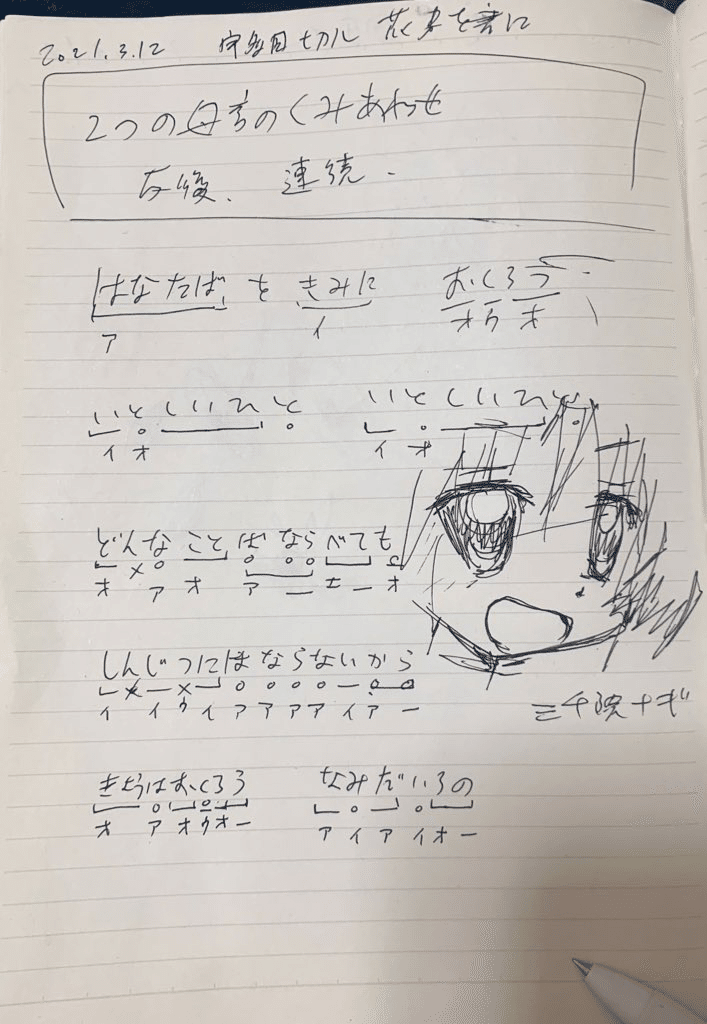 2021.3.12 宇多田ヒカル 花束を君に
2つの母音のくみあわせ
左後、連続.
はなたばをきみに おくろう
ア イ オウオ
いとしいひと いとしいひと
イオ イオ
どんなことばならべても
オ×アオアーエーオ
しんじつにはならないから
イ×イウイアアアアイアー
きょうはおくろう なみだいろの
オアオウオー アイアイオー
三千院ナギ